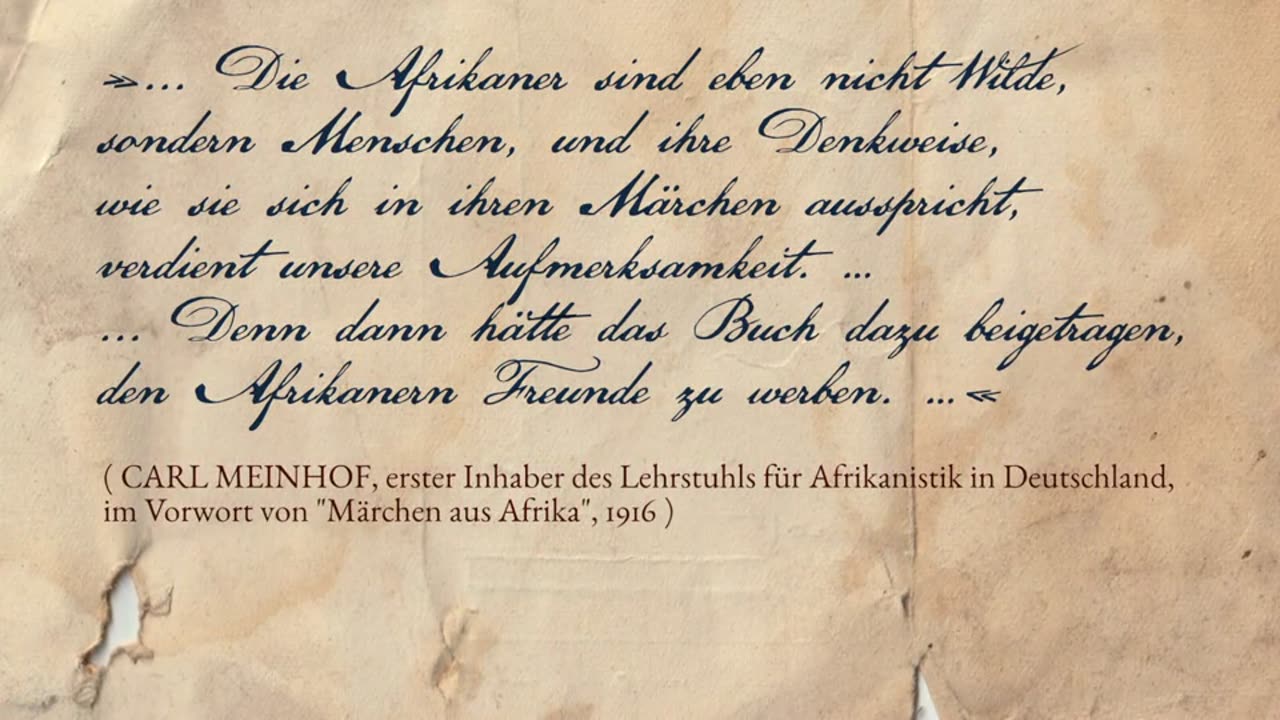 »... Die Afrikaner sind eben nicht Wilde,
sondern Menschen, und ihre Denkweise,
wie sie sich in ihren Märchen ausspricht,
verdient unsere Aufmerksamkeit. ...
... Denn dann hätte das Buch dazu beigetragen,
den Afrikanern Freunde zu werben. ...«
( CARL MEINHOF, erster Inhaber des Lehrstuhls für Afrikanistik in Deutschland,
im Vorwort von "Märchen aus Afrika", 1916 )